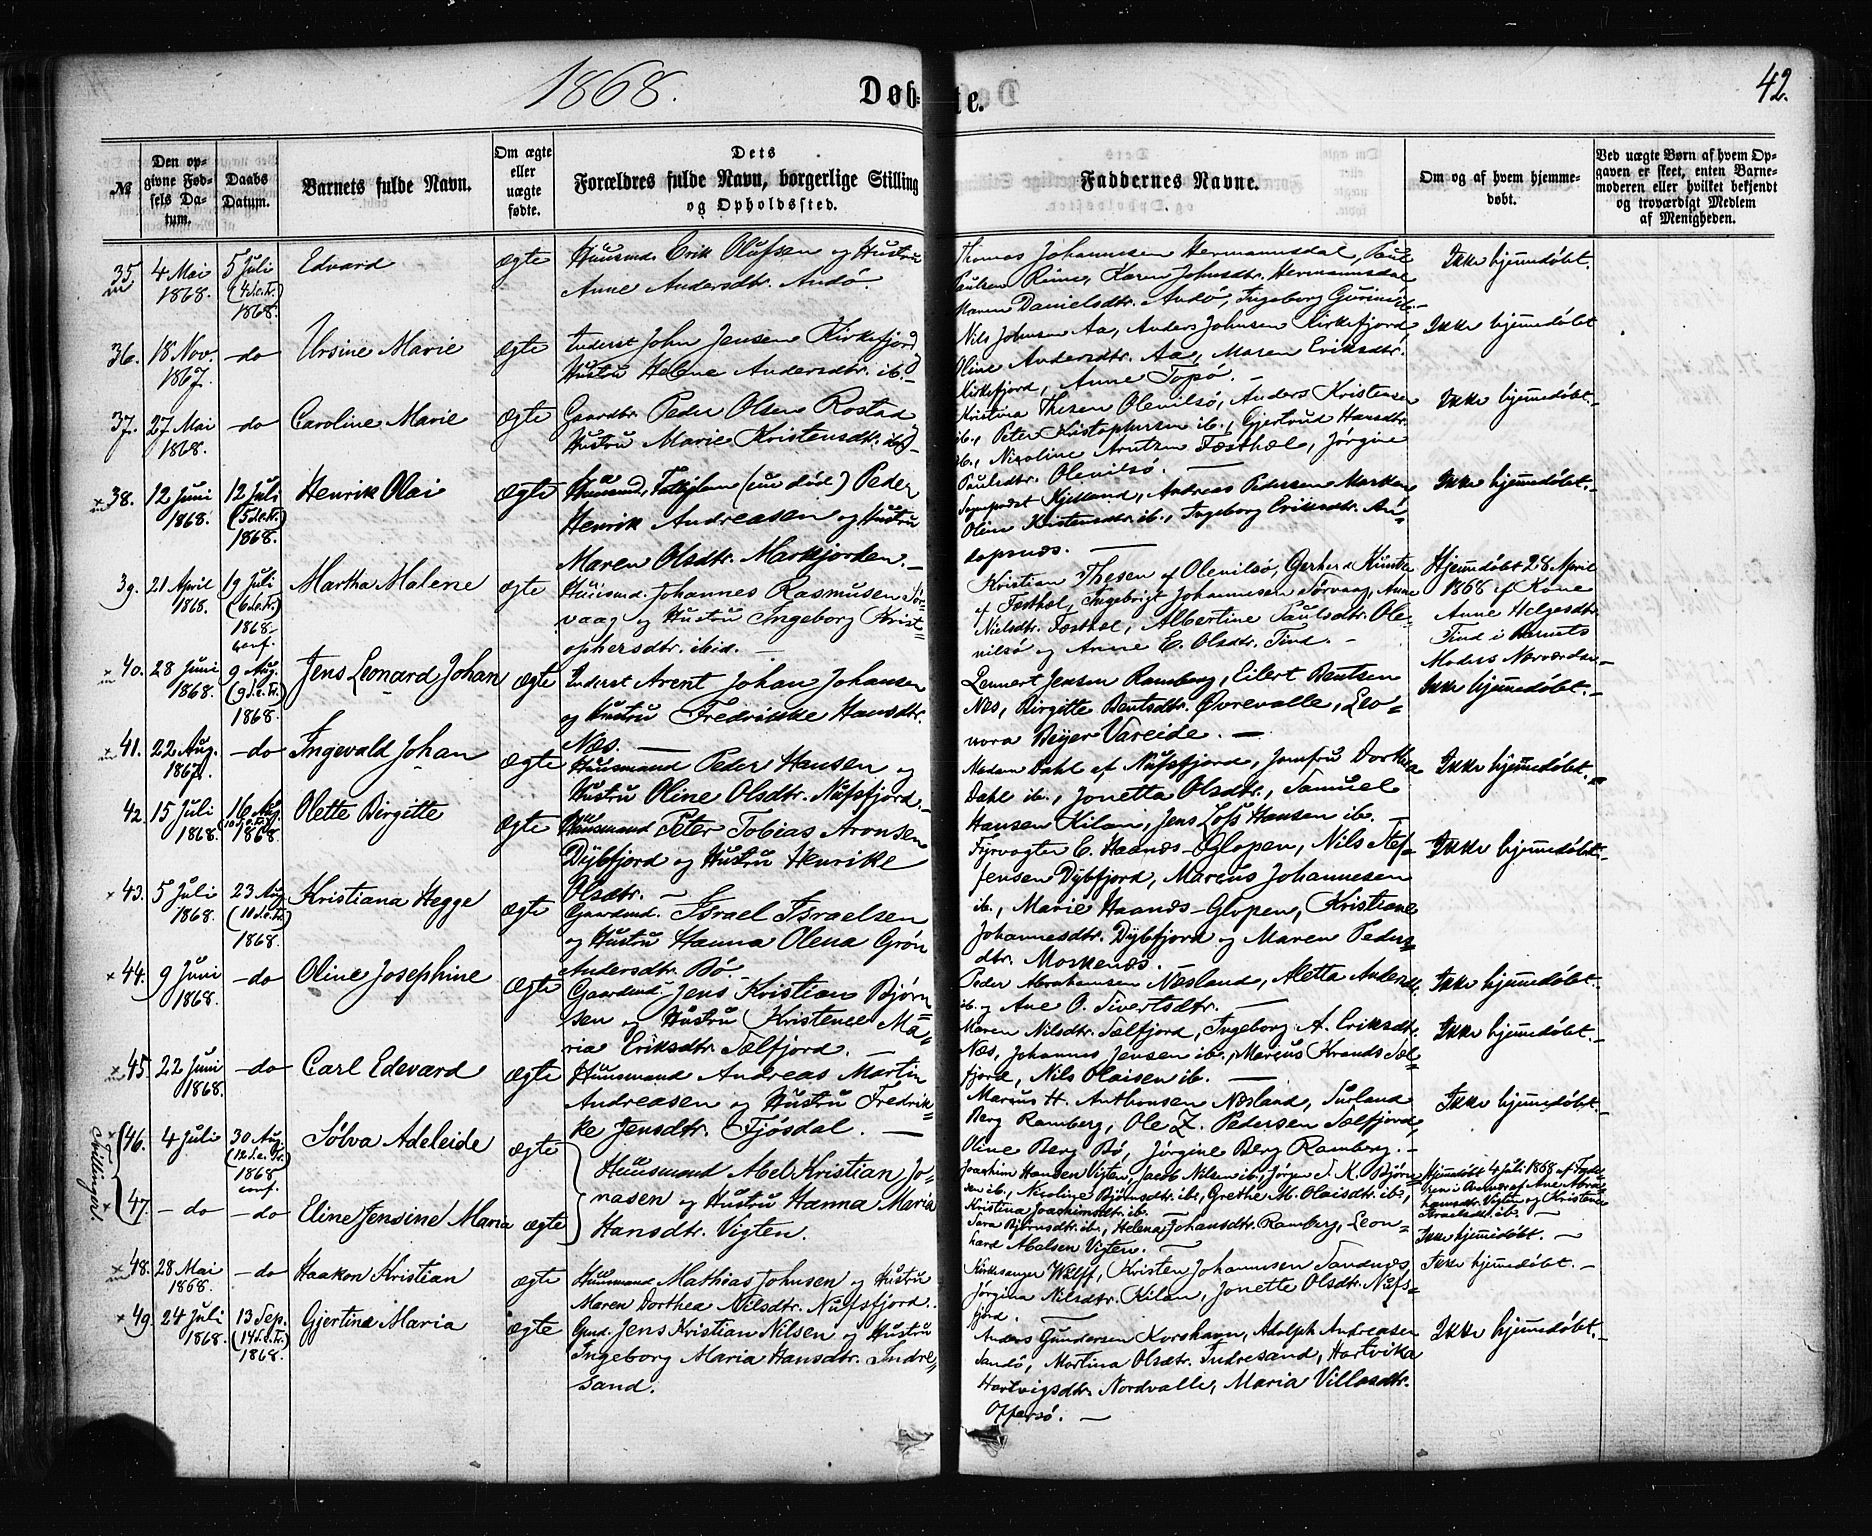 1868.
Døb-
te.
42.
№
Den op-
givne Fød-
sels Da-
tum.
Daabs
Datum.
Barnets fulde Navn.
Om ægte
eller
uægte
fødte.
Dets
Forældres fulde Navn, borgerlige Stilling
og Opholdssted.
Faddernes Navne.
Om og af hvem hjemme-
døbt.
Ved uægte Børn af hvem Op-
gaven er skeet, enten Barne-
moderen eller hvilket bekjendt
og troværdigt Medlem
af Menigheden.
35
4 Mai
1868.
5 Juli
(4 S.e.Tr.)
1868.
Edvard
ægte
Huusmd. Erik Olufsen og Hustru
Anne Andersdtr. Andø.
Thomas Johannesen Hermannsdal, Paul
Paulsen Reine, Karen Johnsdtr. Hermannsdal
Maren Danielsdtr. Andø, Ingeborg
Ikke hjemmedøbt.
36.
18 Nov.
1867.
-do
Ursine Marie
ægte
Inderst John Jensen Kirkefjord
Hustru Helene Andersdtr. ib.
Nils Johnsen Aa, Anders Johnsen Kirkefjord,
Oline Andersdtr. Aa, Maren Eriksdtr.
Kirkefjord, Anne Topø.
Ikke hjemmedøbt
37.
27 Mai
1868.
-do
Caroline Marie
ægte
Gaardbr. Peder Olsen Rostad
Hustru Marie Kristensdtr. ibd
Kristina Thesen Olenilsø, Anders Kristensen
ib., Peter Kristophersen ib., Gjertrud Hansdtr.
ib., Nicoline Arntzen Festhæl, Jørgine
Paulsdtr. Olenilsø.
Ikke hjemmedøbt.
38.
12 Juni
1868.
12 Juli
(5 S.e.Tr.)
1868.
Henrik Olai
ægte
(nu død) Peder
Henrik Andreasen og Hustru
Maren Olsdtr. Markjorden.
Kjelland, Andreas Pedersen Marken
Oline Kristensdtr. ib., Ingeborg Eriksdtr. An-
dopsnæs.
Ikke hjemmedøbt.
39.
21 April
1868.
19 Juli
(6 S.e.Tr.)
1868
conf.
Martha Malene
ægte
Huusmd. Johannes Rasmusen Sør-
vaag og Hustru Ingeborg Krist-
ophersdtr. ibid.
Kristian Thesen af Olenilsø, Gerhard
af Festhæl, Ingebrigt Johannesen Sørvaag, Anne
Nielsdtr. Festhæl, Albertine Paulsdtr. Ole-
nilsø og Anne E. Olsdtr. Tind.
Hjemmedøbt 28 April
1868 af Kone
Anne Helgesdtr.
Tind i Barnets
Moders Nærværelse
40.
28 Juni
1868.
9 Aug.
(9 S.e.Tr.)
1868.
Jens Leonard Johan
ægte
Inderst Arent Johan Johansen
og Hustru Fredrikke Hansdtr.
Næs.
Lennert Jensen Ramberg, Eilert Bentsen
Næs, Birgitte Bentsdtr. Øvrevalle, Leo-
nora Beijer Vareide.
Ikke hjemmedøbt.
41.
22 Aug.
1867.
-do
Ingevald Johan
ægte
Huusmand Peder Hansen og
Hustru Oline Olsdtr. Nufsfjord.
Madam Dahl af Nufsfjord, Jomfru Dorthea
Dahl ib., Jonetta Olsdtr., Samuel
Hansen Kilan, Jens Lofs Hansen ib.
Ikke hjemmedøbt.
42.
15 Juli
1868.
16 Aug.
(10 S.e.Tr.)
1868
Olette Birgitte
ægte
Huusmand Peter Tobias Aronsen
Dybfjord og Hustru Henrike
Olsdtr.
Fyrvogter C. Haands-Glopen, Nils Stef-
fensen Dybfjord, Marcus Johannesen
ib., Marie Haands-Glopen, Kristiane
Johannesdtr. Dybfjord og Maren Peders-
dtr. Moskenæs.
Ikke hjemmedøbt.
43.
5 Juli
1868.
23 Aug.
(11 S.e.Tr.)
1868.
Kristiana Hegge
ægte
Gaardmd. Israel Israelsen
og Hustru Hanna Olena Grøn
Andersdtr. Bø.
Peder Abrahamsen Næsland, Aletta Andersdtr.
ib. og Ane O. Sivertsdtr.
Ikke hjemmedøbt.
44.
9 Juni
1868.
-do
Oline Josephine
ægte
Gaardmd. Jens Kristian Bjørn-
sen og Hustru Kristense Ma-
ria Eriksdtr. Sælfjord.
Maren Nilsdtr. Sælfjord, Ingeborg A. Eriksdtr.
Næs, Johannes Jensen ib., Marcus Krands Sæl-
fjord, Nils Olaisen ib.
Ikke hjemmedøbt.
45.
22 Juni
1868.
-do
Carl Edevard
ægte
Huusmand Andreas Martin
Andreasen og Hustru Fredrik-
ke Jensdtr. Fjøsdal.
Marcus H. Anthonsen Næsland,
Berg Ramberg, Ole Z. Pedersen Sælfjord,
Oline Berg Bø, Jørgine Berg Ramberg.
Ikke hjemmedøbt.
Tvillingpar.
46.
4 Juli
30 Aug.
(12 S.e.Tr.)
1868
conf.
Sølva Adeleide
ægte
Huusmand Abel Kristian Jo-
nasen og Hustru Hanna Maria
Hansdtr. Vigten.
Joachim Hansen Vigten, Jacob Nilsen ib., Jørgen S. K. Bjørn-
sen ib., Nicoline Bjørnsdtr. ib., Grethe M. Olaisdtr. ib.,
Kristina Joachimsdtr. ib.
Hjemmedøbt 4 Juli 1868 af
hamsdtr. Vigten og Kristense
Israelsdtr. ib.
47.
-do
-do
Eline Jensine Maria
ægte
Sara Bjørnsdtr. ib., Helena Johansdtr. Ramberg, Leon-
hard Abelsen Vigten.
Ikke hjemmedøbt.
48.
28 Mai
1868.
-do
Haakon Kristian
ægte
Huusmand Mathias Johnsen og Hustru
Maren Dorthea Nilsdtr. Nufsfjord.
Kirkesanger Wulff, Kristen Johannesen Sandnæs,
Jørgina Nilsdtr. Kilan, Jonette Olsdtr. Nufs-
fjord.
Ikke hjemmedøbt.
49.
24 Juli
1868.
13 Sep.
(14 S.e.Tr.)
1868.
Gjertine Maria
ægte
Gmd. Jens Kristian Nilsen og Hustru
Ingeborg Maria Hansdtr. Indre-
sand.
Anders Gundersen Korshavn, Adolph Andreasen
Sandø, Martina Olsdtr. Indresand, Hartvika
Hartvigsdtr. Nordvalle, Maria Villasdtr.
Offersø.
Ikke hjemmedøbt.